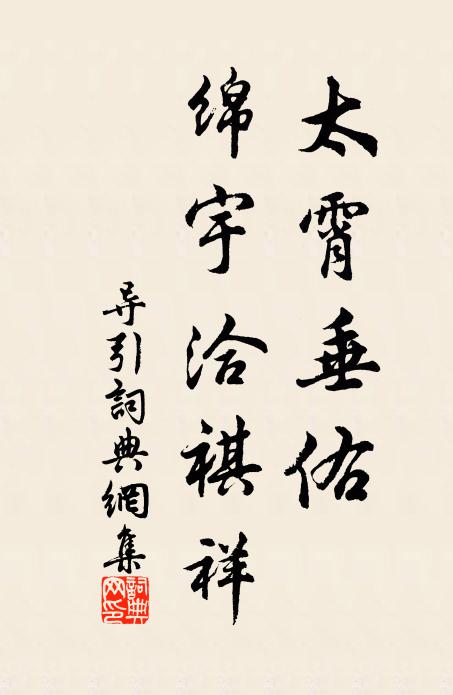 太霄垂佑
绵宇洽祺祥
导引词典網集
詞典
网印